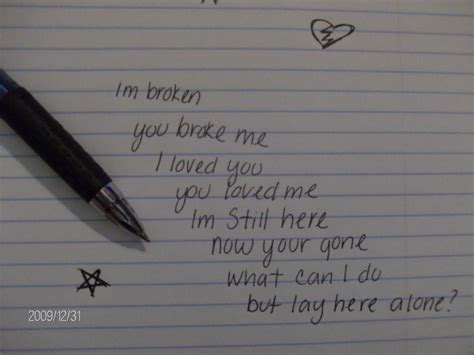 Im broken
you broke me
I loved you
you loved me
Im Still here
now your gone
what can I do
but lay here alone?
2009/12/31